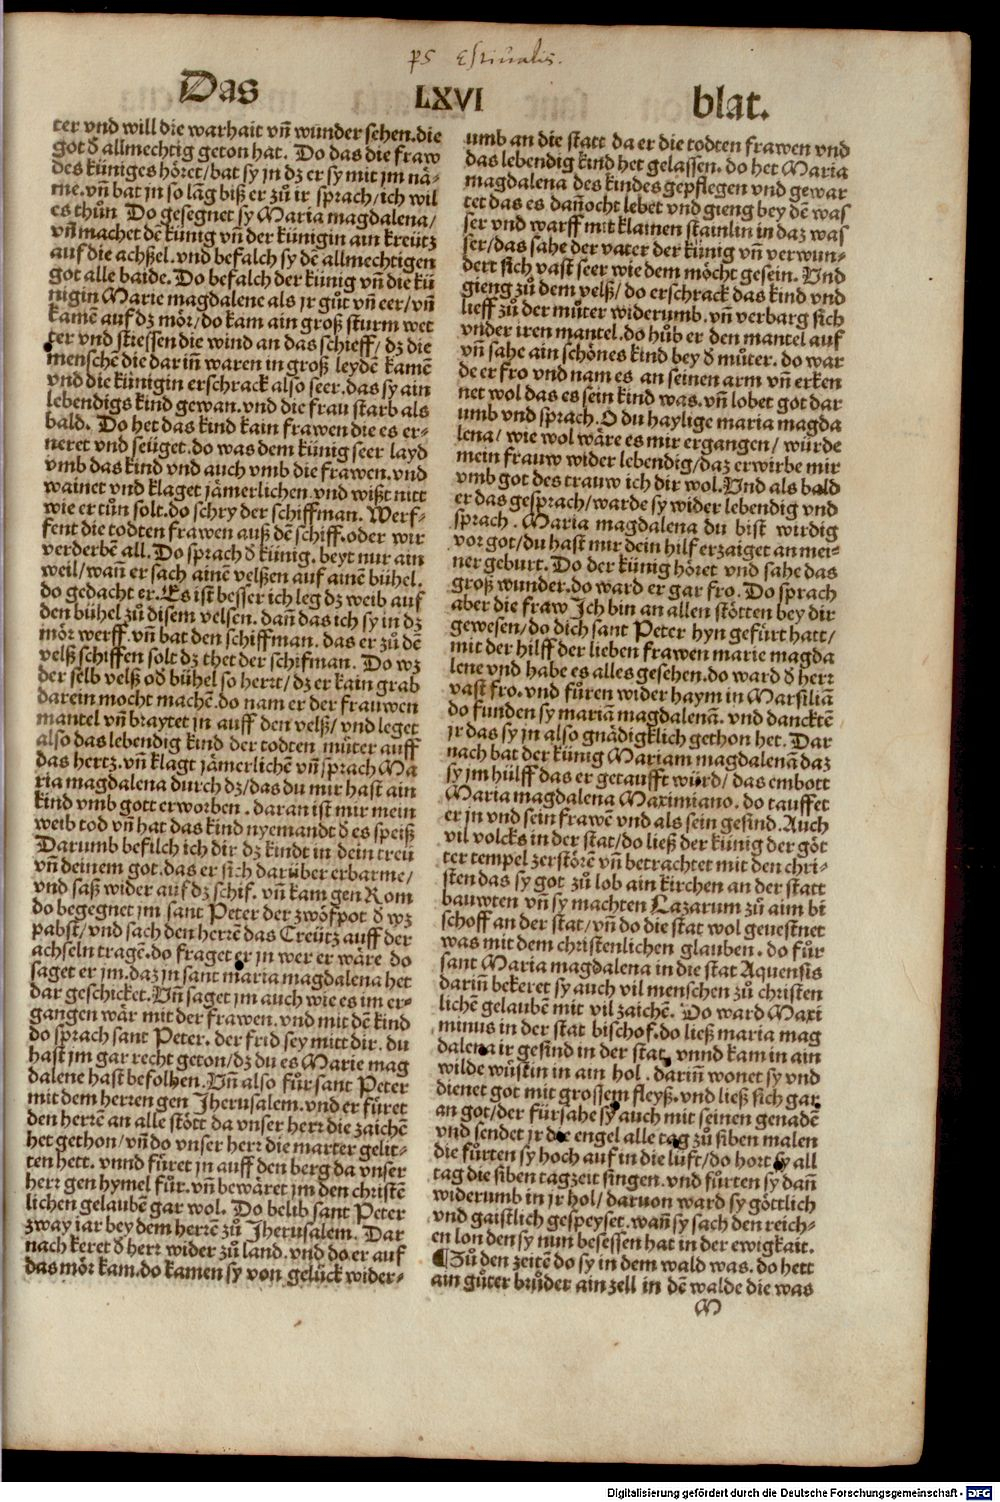 ps Estiualis.
Das LXVI blat.
ter vnd will die warhait vn̄ wunder sehen.die
got d̕ allmechtig geton hat. Do das die fraw
des küniges höret/bat sy jn dz er sy mit jm nä-
me.vn̄ bat jn so lāg biß er zů ir sprach/ich wil
es thůn Do gesegnet sy Maria magdalena/
vn̄ machet dē künig vn̄ der künigin ain kreütz
auf die achßel.vnd befalch sy dē allmechtigen
got alle baide. Do befalch der künig vn̄ die kü
nigin Marie magdalene als jr gůt vn̄ eer/vn̄
kamē auf dz mör/do kam ain groß sturm wet
ter vnd stiessen die wind an das schieff/dz die
menschē die dar in̄ waren in groß leydē kamē
vnd die künigin erschrack also seer.das sy ain
lebendigs kind gewan.vnd die frau starb als
bald. Do het das kind kain frawen die es er-
neret vnd seüget.do was dem künig seer layd
vmb das kind vnd auch vmb die frawen.vnd
wainet vnd klaget jämerlichen.vnd wißt nitt
wie er tůn solt.do schry der schiffman. Werf-
fent die todten frawen auß dē schiff.oder wir
verderbē all. Do sprach d̕ künig.beyt nur ain
weil/wan̄ er sach ainē velßen auf ainē bühel.
do gedacht er.Es ist besser ich leg dz weib auf
den bühel zů disem velsen.dan̄ das ich sy in dz
mör werff.vn̄ bat den schiffman.das er zů dē
velß schiffen solt dz thet der schifman. Do wz
der selb velß od̕ bühel so herrt/dz er kain grab
darein mocht machē.do nam er der frauwen
mantel vn̄ braytet jn auff den velß/vnd leget
also das lebendig kind der todten můter auff
das hertz.vn̄ klagt jämerlichē vn̄ sprach Ma
ria magdalena durch dz/das du mir hast ain
kind vmb gott erworben.daran ist mir mein
weib tod vn̄ hat das kind nyemandt d̕ es speiß
Darumb befilch ich dir dz kindt in dein treü
vn̄ deinem got.das er sich darüber erbarme/
vnd saß wider auf dz schif.vn̄ kam gen Rom
do begegnet jm sant Peter der zwöfpot d̕ wz
pabst/vnd sach den herrē das Creütz auff der
achseln tragē.do fraget er in wer er wäre do
saget er jm.daz jn sant maria magdalena het
dar geschicket.Vn̄ saget jm auch wie es im er-
gangen wär mit der frawen.vnd mit dē kind
do sprach sant Peter.der frid sey mitt dir.du
hast jm gar recht geton/dz du es Marie mag
dalene hast befolhen.Vn̄ also fůr sant Peter
mit dem herren gen Jherusalem.vnd er fůret
den herrē an alle stött da vnser herr die zaichē
het gethon/vn̄ do vnser herr die marter gelit-
ten hett.vnnd fůret jn auff den berg da vnser
herr gen hymel fůr.vn̄ bewäret jm den christē
lichen gelaubē gar wol. Do belib sant Peter
zway iar bey dem herrē zů Jherusalem. Dar
nach keret d̕ herr wider zů land.vnd do er auf
das mör kam.do kamen sy von gelück wider-
umb an die statt da er die todten frawen vnd
das lebendig kind het gelassen.do het Maria
magdalena des kindes gepflegen vnd gewar
tet das es dan̄ocht lebet vnd gieng bey dē was
ser vnd warff mit klainen stainlin in daz was
ser/das sahe der vater der künig vn̄ verwun-
dert sich vast seer wie dem möcht gesein. Vnd
gieng zů dem velß/do erschrack das kind vnd
lieff zů der můter widerumb.vn̄ verbarg sich
vnder iren mantel.do hůb er den mantel auf
vn̄ sahe ain schönes kind bey d̕ můter.do war
de er fro vnd nam es an seinen arm vn̄ erken
net wol das es sein kind was.vn̄ lobet got dar
umb vnd sprach.O du haylige maria magda
lena/wie wol wäre es mir ergangen/würde
mein frauw wider lebendig/daz erwirbe mir
vmb got des trauw ich dir wol.Vnd als bald
er das gesprach/warde sy wider lebendig vnd
sprach. Maria magdalena du bist wirdig
vor got/du hast mir dein hilf erzaiget an mei-
ner geburt. Do der künig höret vnd sahe das
groß wunder.do ward er gar fro. Do sprach
aber die fraw Ich bin an allen stötten bey dir
gewesen/do dich sant Peter hyn gefürt hatt/
mit der hilff der lieben frawen marie magda
lene vnd habe es alles gesehen.do ward d̕ herr
vast fro.vnd fůren wider haym in Marsiliā
do funden sy mariā magdalenā.vnd dancktē
jr das sy jn also gnädigklich gethon het. Dar
nach bat der künig Mariam magdalenā daz
sy jm hülff das er getaufft würd/das embott
Maria magdalena Maximiano.do tauffet
er jn vnd sein frawē vnd als sein gesind.Auch
vil volcks in der stat/do ließ der künig der göt
ter tempel zerstörē vn̄ betrachtet mit den chri-
sten das sy got zů lob ain kirchen an der statt
bauwten vn̄ sy machten Lazarum zů aim bi
schoff an der stat/vn̄ do die stat wol geuestnet
was mit dem christenlichen glauben.do fůr
sant Maria magdalena in die stat Aquensis
darin̄ bekeret sy auch vil menschen zů christen
lichē gelaubē mit vil zaichē. Do ward Maxi
minus in der stat bischof.do ließ maria mag
dalena ir gesind in der stat.vnnd kam in ain
wilde wůstin in ain hol.darin̄ wonet sy vnd
dienet got mit grossem fleyß.vnd ließ sich gar
an got/der fürsahe sy auch mit seinen genadē
vnd sendet jr die engel alle tag zů siben malen
die fůrten sy hoch auf in die lüft/do hort sy all
tag die siben tagzeit singen.vnd fůrten sy dan̄
widerumb in jr hol/daruon ward sy göttlich
vnd gaistlich gespeyset.wan̄ sy sach den reich-
en lon den sy nun besessen hat in der ewigkait.
¶Zů den zeitē do sy in dem wald was.do hett
ain gůter brůder ain zell in dē walde die was
M
Digitalisierung gefördert durch die Deutsche Forschungsgemeinschaft - DFG